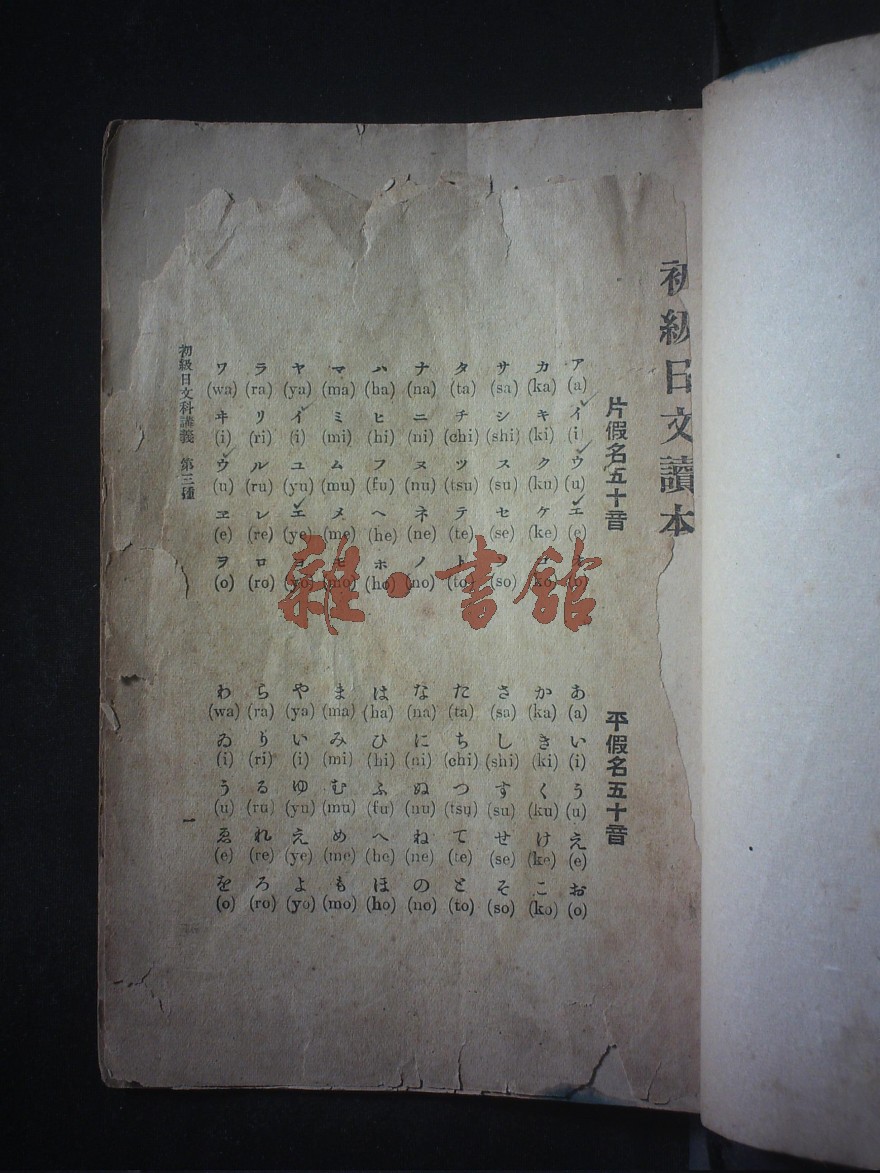 初級日文讀本
片假名五十音
ア (a) イ (i) ウ (u) エ (e) オ (o)
カ (ka) キ (ki) ク (ku) ケ (ke) コ (ko)
サ (sa) シ (shi) ス (su) セ (se) (so)
タ (ta) チ (chi) ツ (tsu) テ (te) ト (to)
ナ (na) ニ (ni) ヌ (nu) ネ (ne) ノ (no)
ハ (ha) ヒ (hi) フ (fu) ヘ (he) ホ (ho)
マ (ma) ミ (mi) ム (mu) メ (me) モ (mo)
ヤ (ya) イ (i) ユ (yu) エ (ye) ヨ (yo)
ラ (ra) リ (ri) ル (ru) レ (re) ロ (ro)
ワ (wa) ヰ (i) ウ (u) ヱ (e) ヲ (o)
平假名五十音
あ (a) い (i) う (u) え (e) お (o)
か (ka) き (ki) く (ku) け (ke) こ (ko)
さ (sa) し (shi) す (su) せ (se) そ (so)
た (ta) ち (chi) つ (tsu) て (te) と (to)
な (na) に (ni) ぬ (nu) ね (ne) の (no)
は (ha) ひ (hi) ふ (fu) へ (he) ほ (ho)
ま (ma) み (mi) む (mu) め (me) も (mo)
や (ya) い (i) ゆ (yu) え (ye) よ (yo)
ら (ra) り (ri) る (ru) れ (re) ろ (ro)
わ (wa) ゐ (i) う (u) ゑ (e) を (o)
初級日文科講義 第三種
一
雜·書館